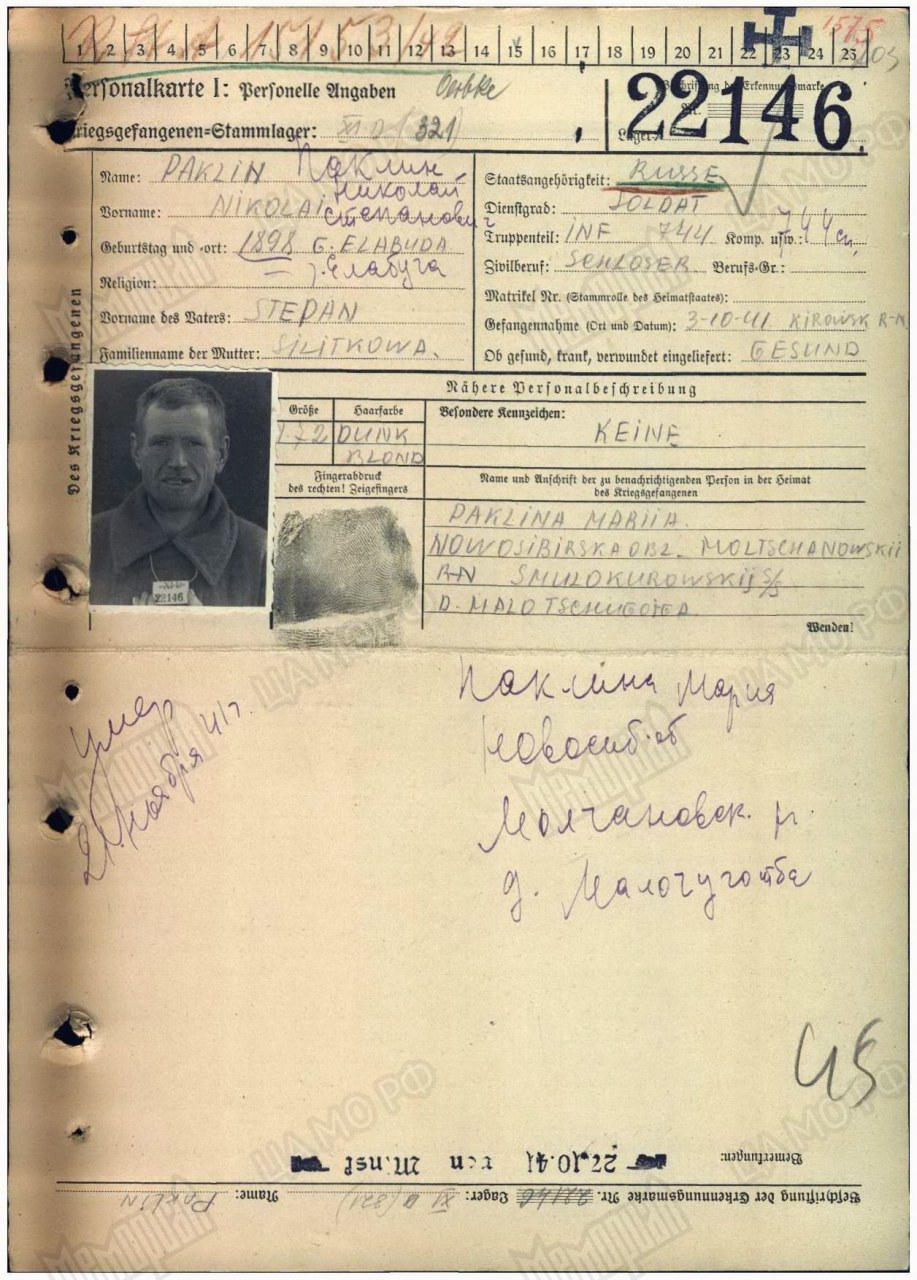 1 2 3 4 5 6 7 8 9 10 11 12 13 14 15 16 17 18 19 20 21 22 23 24 25
Personalkarte I: Personelle Angaben Oerbke
Kriegsgefangenen=Stammlager: XI D (321)
22146.
Name: PAKLIN Паклин
Николай
Vorname: NIKOLAI Степанович
Geburtstag und -ort: 1898 G. ELABUDA
г. Елабуга
Religion:
Vorname des Vaters: STEPAN
Familienname der Mutter: SILITKOWA.
Staatsangehörigkeit: RUSSE
Dienstgrad: SOLDAT
Truppenteil: INF 744 Komp. usw.: 744 сп.
Zivilberuf: SCHLOSER Berufs-Gr.:
Matrikel Nr. (Stammrolle des Heimatstaates):
Gefangennahme (Ort und Datum): 3-10-41 KIROWSK R-N
Ob gesund, krank, verwundet eingeliefert: GESUND
Des Kriegsgefangenen
Nähere Personalbeschreibung
Größe Haarfarbe
1.72 DUNK
BLOND
Besondere Kennzeichen:
KEINE
Fingerabdruck
des rechten! Zeigefingers
Name und Anschrift der zu benachrichtigenden Person in der Heimat
des Kriegsgefangenen
PAKLINA MARIIA.
NOWOSIBIRSKA OBL. MOLTSCHANOWSKII
R-N SMULOKUROWSKIJ S/S
D. MALOTSCHUGOWA
22146
Wenden!
умер
21 ноября 41 г.
Паклина Мария
Новосиб. об
Молчановск. р.
д.
45
Bemerkungen:
27.10.41 von
Beschriftung der Erkennungsmarke Nr. 22146 Lager: XI D (321) Name: PAKLIN
МЕМОРИАЛ
ЦАМО РФ